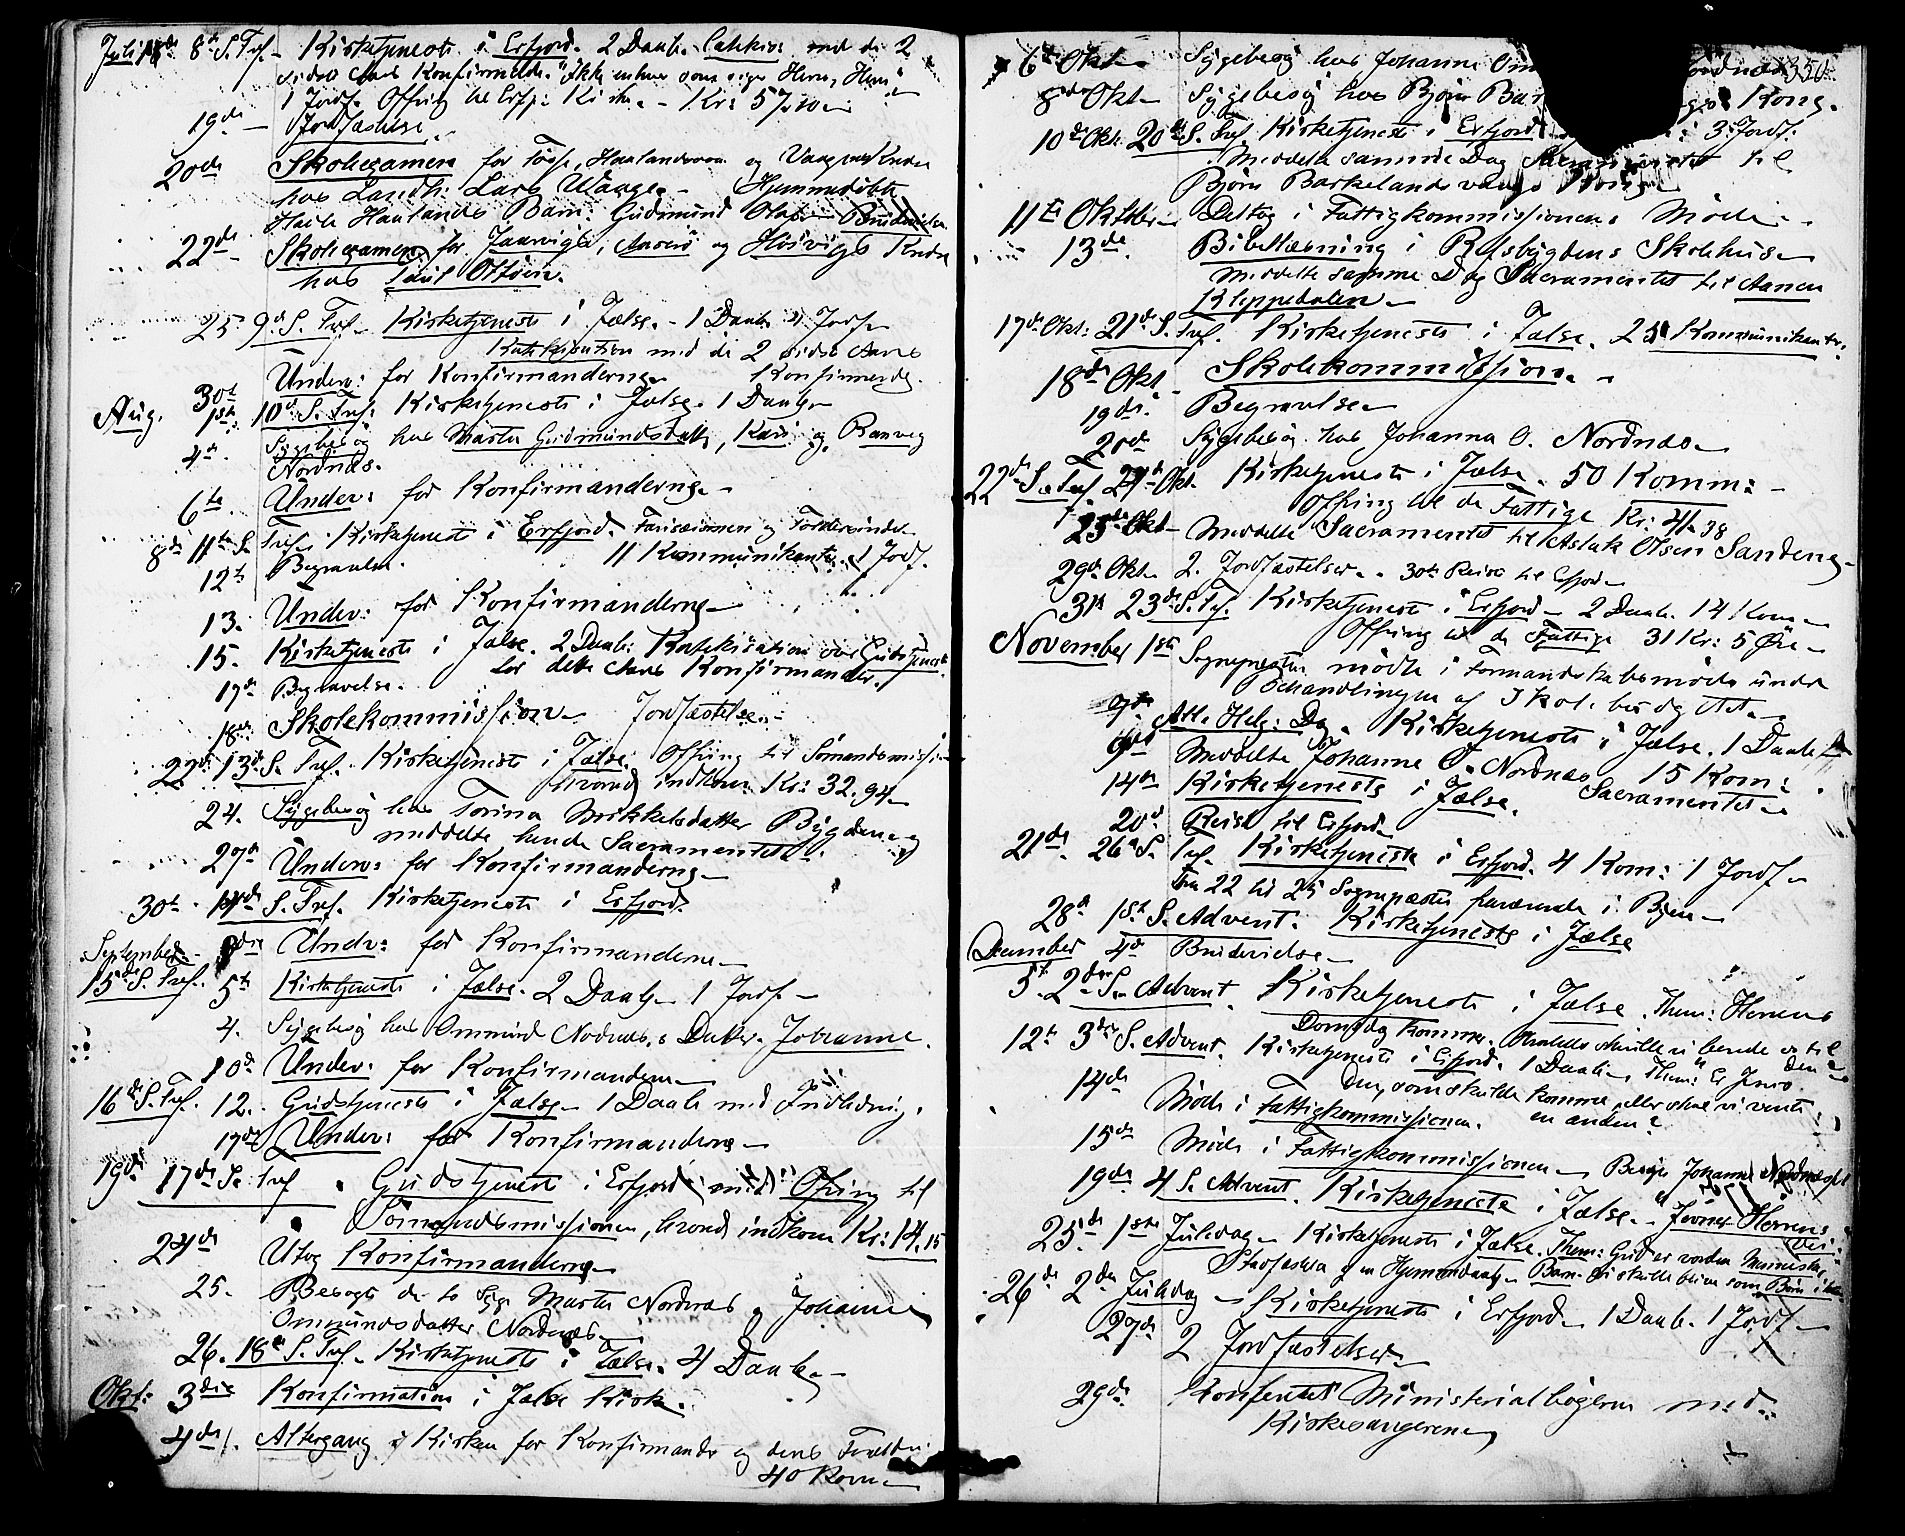 Juli 18de 8de S. Tref. Kirketjeneste i Erfjord. 2 Daab. Catekis: med de 2
sidste Aars Konfirmerede. "Ikke enhver som siger Herre, Herre"
1 Jordf. Offring til Erfj: Kirke. - Kr: 57.10
19de Jordfæstelse.
20de Skoleexamen for Tøsse, Haalandsvaa og Vaagenes Kreds
hos Landh. Lars Waage. - Hjemmedøbte
Gudmund Brudevielse
22de Skoleexamen for Jaarvigs, og Høivigs Kreds
hos
25 9de S. Tref. Kirketjeneste i Jælse. - 1 Daab 4 Jordf.
Katekisation med de 2 sidste Aars
Konfirmerede.
30te Underv: for Konfirmanderne
Aug. 1ste 10de S. Tref: Kirketjeneste i Jælse. 1 Daab
4de Sygebesøg hos Marta Gudmundsdatter, Kari og Ranveig
Nordnæs.
6te Underv: for Konfirmanderne. -
8de 11te S. Tref. Kirketjeneste i Erfjord. Farisæismen og Tolderen
11 Kommunikanter. 1 Jordf.
12te Begravelse.
13. Underv: for Konfirmanderne
15. Kirketjeneste i Jælse. 2 Daab: Katekisation over Gudstjenesten
for dette Aars Konfirmander.
17de Begravelse.
18de Skolekommission Jordfæstelse
22de 13de S. Tref. Kirketjeneste i Jælse. Offring til Sømandsmissionen
hvorved indkom Kr: 32.94
24. Sygebesøg hos Torina Mikkelsdatter Bygdene
meddelte hende Sacramentet.
27de Underv: for Konfirmanderne
30te 14de S. Tref. Kirketjeneste i Erfjord.
September Underv: for Konfirmanderne
15de S. Tref. 5te Kirketjeneste i Jælse. 2 Daab. 1 Jordf.
4. Sygebesøg hos Ommund Nordnæs's Datter Johanne.
10de Underv: for Konfirmanderne
16de S. Tref. 12. Gudstjeneste i Jælse. 1 Daab med Indledning.
17de Underv: for Konfirmanderne
19de 17de S. Tref. Gudstjeneste i Erfjord med Offring til
Sømandsmissionen, hvorved indkom Kr: 14.15
24de Utog Konfirmanderne
25. Besøgte de to Syge Marta Nordnæs og Johanne
Ommundsdatter Nordnæs
26. 18de S. Tref. Kirketjeneste i Jælse. 4 Daab.
Okt: 3die Konfirmation i Jælse Kirke.
4de Altergang i Kirken for Konfirmander og deres Forældre
40 Kom
350
6te Okt Sygebesøg hos Johanne Om
8de Okt Sygebesøg hos Bjørn Bar Kong.
10de Okt. 20de S. Tref. Kirketjeneste i Erfjord 3 Jordf:
Meddelte samme Dag Sacramentet til
Bjørn Barkelandsvaags Konge
11te Oktober Deltog i Fattigkommissionens Møde
13de Bibellæsning i Refsbygdens Skolehus
Meddelte samme Dag Sacramentet til Aanen
Kleppedalen
17de Okt: 21de S. Tref. Kirketjeneste i Jælse. 25 Kommunikanter.
18de Okt. Skolekommission. -
19de. Begravelse
20de Sygebesøg hos Johanna O. Nordnæs
22de S. Tref. 24de Okt. Kirketjeneste i Jælse. 50 Komm: -
Offring til de Fattige Kr. 41.38
25de Okt Meddelte Sacramentet til Aslak Olsen Sandeng
29de Okt. 2 Jordfæstelser. 30te Reise til Erfjord
31te 23de S. Tref. Kirketjeneste i Erfjord 2 Daab. 14 Kom
Offring til de Fattige 31 Kr: 5 Øre
November 1ste Sognepresten mødte i Formandskabsmøde under
Behandlingen af Skolebudgettet.
7de Alle Helg: Dag. Kirketjeneste i Jælse. 1 Daab
15 Kom:
Meddelte Johanne O. Nordnæs Sacramentet
14de Kirketjeneste i Jælse.
20de Reise til Erfjord
21de 26de S. Tref. Kirketjeneste i Erfjord. 4 Kom: 1 Jordf
Fra 22 til 25 Sognepresten fraværende i Byen
28de 1ste S. Advent. Kirketjeneste i Jælse
December 4de Brudevielse
5te 2den S. Advent. Kirketjeneste i Jælse. Them: Herrens
Domsdag kommer. Hvorledes skulle vi berede os til den
12te 3die S. Advent. Kirketjeneste i Erfjord. 1 Daab. Them: Er Jesus
Den, som skulde komme, eller skal vi vente
en anden?
14de Møde i Fattigkommissionen.
15de Møde i Fattigkommissionen Besøgte Johanne Nordnæs
19de 4 S. Advent. Kirketjeneste i Jælse. "Jevner Herrens
Vei"
25de 1ste Juledag Kirketjeneste i Jælse. Them: Gud er vorden Menneske,
Stadfæstelse af en Hjemmedaab
26de 2den Juledag Kirketjeneste i Erfjord 1 Daab. 1 Jordf
27de 2 Jordfæstelser
29de Konfereret Ministerialbøgerne med
Kirkesangerne